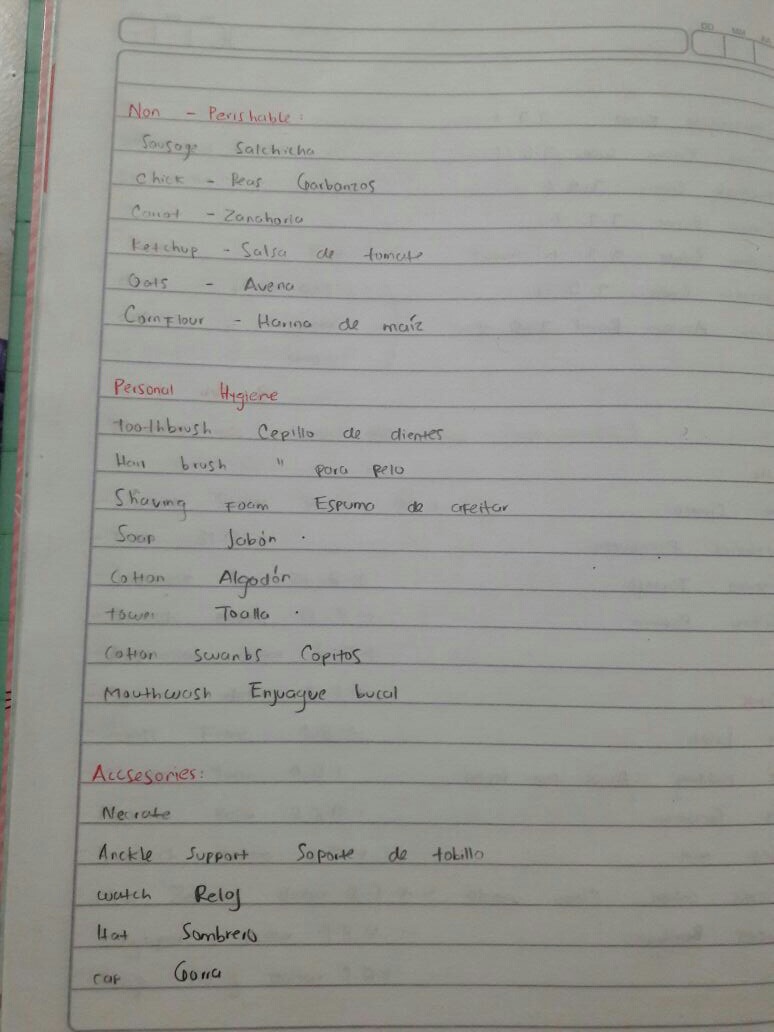 DD MM
Non - Perishable:
Sousage Salchicha
Chick - Peas Garbanzos
Carrot - Zanahoria
Ketchup - Salsa de tomate
Oats - Avena
Cornflour - Harina de maíz
Personal Hygiene
toothbrush Cepillo de dientes
Hair brush " para pelo
Shaving Foam Espuma de afeitar
Soap Jabón
Cotton Algodón
towel Toalla
Cotton swanbs Copitos
Mouthwash Enjuague bucal
Accsesories:
Anckle Support Soporte de tobillo
watch Reloj
Hat Sombrero
cap Gorra